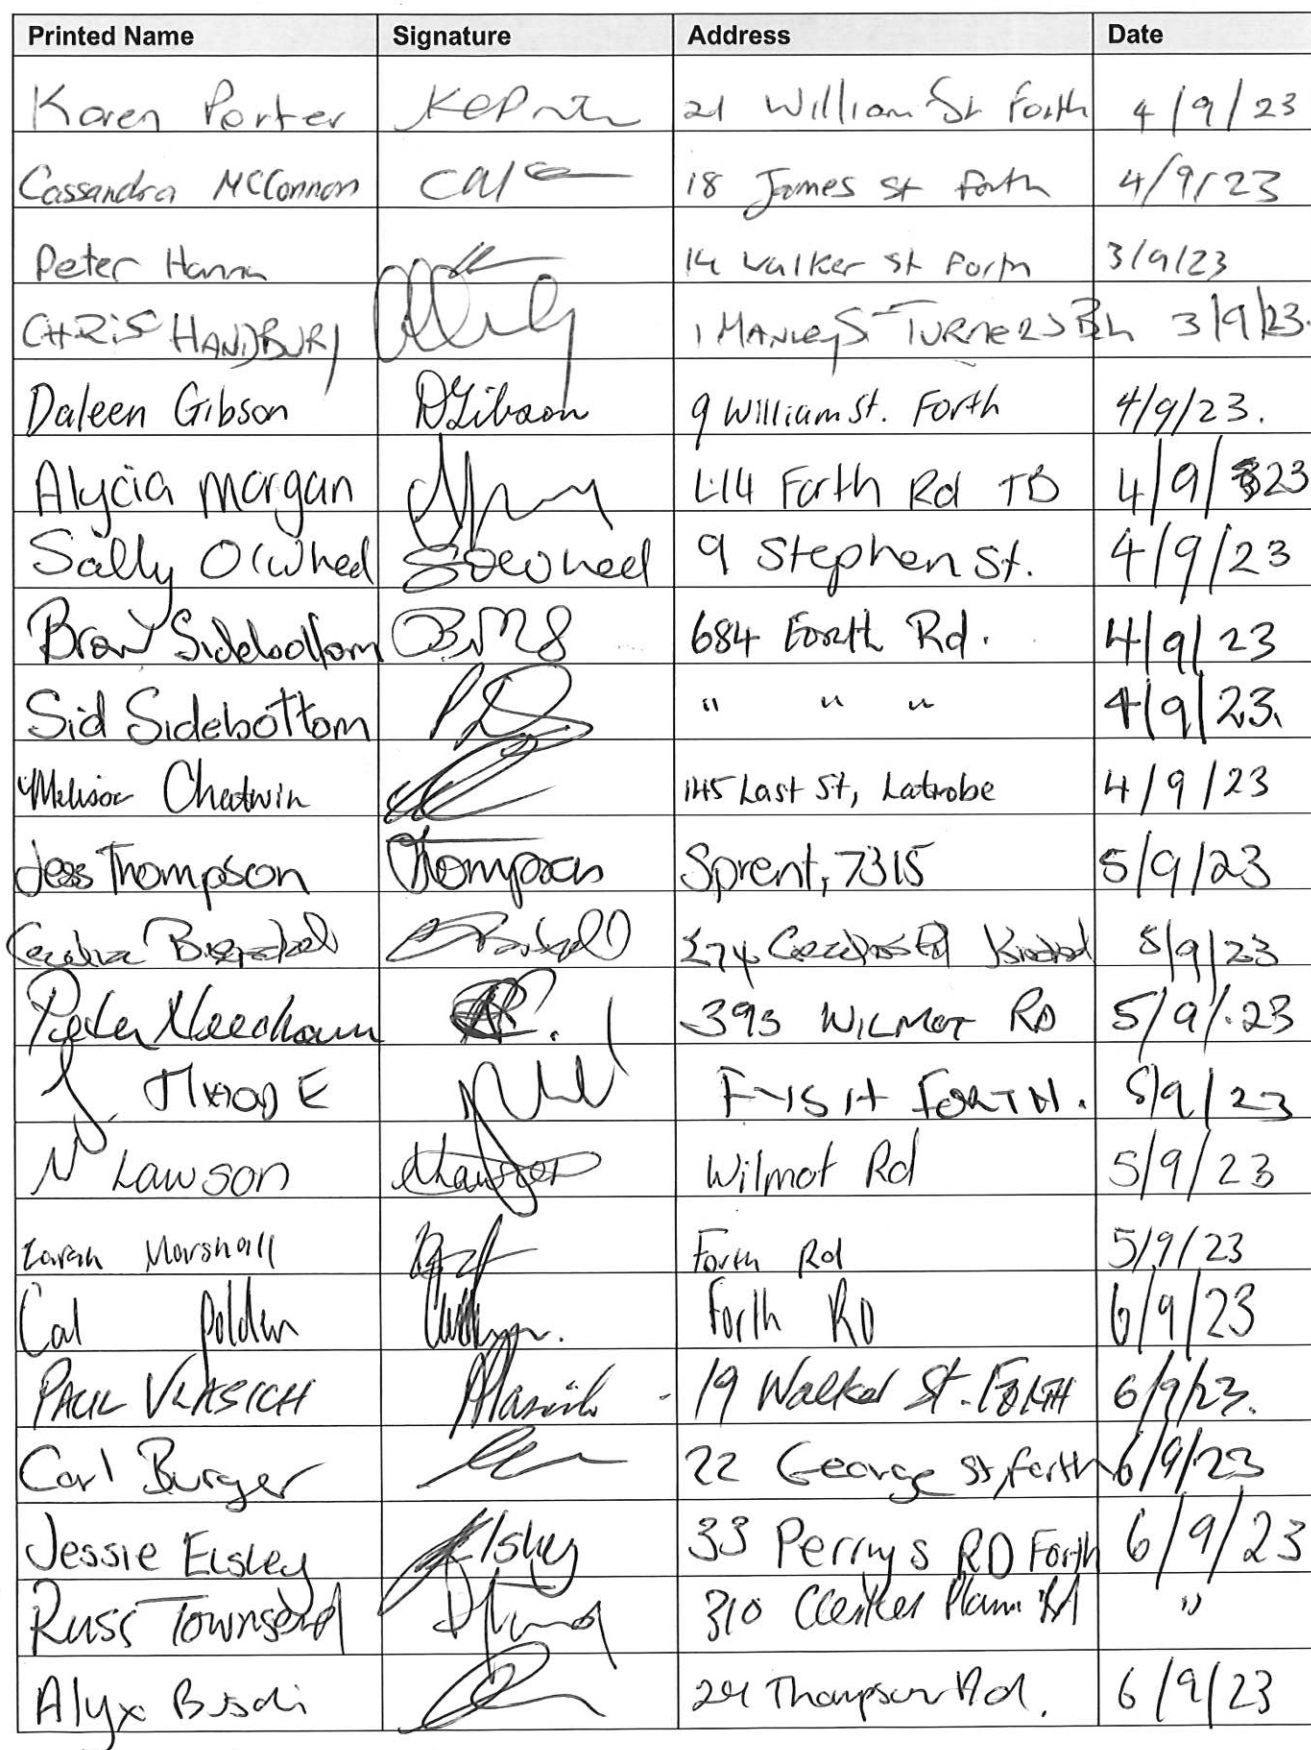 Printed Name Signature Address Date
Karen Porter 21 William St Forth 4/9/23
Cassandra McConnon 18 James st Forth 4/9/23
Peter Hanna 14 Walker st Forth 3/9/23
CHRIS HANDBURY 1 MANLEYS TURNERS Bh 3/9/23.
Daleen Gibson DGibson 9 William st. Forth 4/9/23.
Alycia Morgan 414 Forth Rd TB 4/9/23
Sally 9 Stephen St. 4/9/23
Sidebottom BMS 684 Forth Rd. 4/9/23
Sid Sidebottom " " " 4/9/23.
Melissa Chatwin Last St, Latrobe 4/9/23
Jess Thompson Thompson Sprent, 7315 5/9/23
5/9/23
Peter Needham 393 WILMOT RD 5/9/23
FORTH. 5/9/23
N Lawson Wilmot Rd 5/9/23
Marshall Forth Rd 5/9/23
Cal Polden Forth RD 6/9/23
PAUL VLASICH 19 Walker St. FORTH 6/9/23.
Carl Burger 22 George st, forth 6/9/23
Jessie Elsley Elsley 33 Perrys RD Forth 6/9/23
Russ Townsend 310 Rd "
Alyx 6/9/23